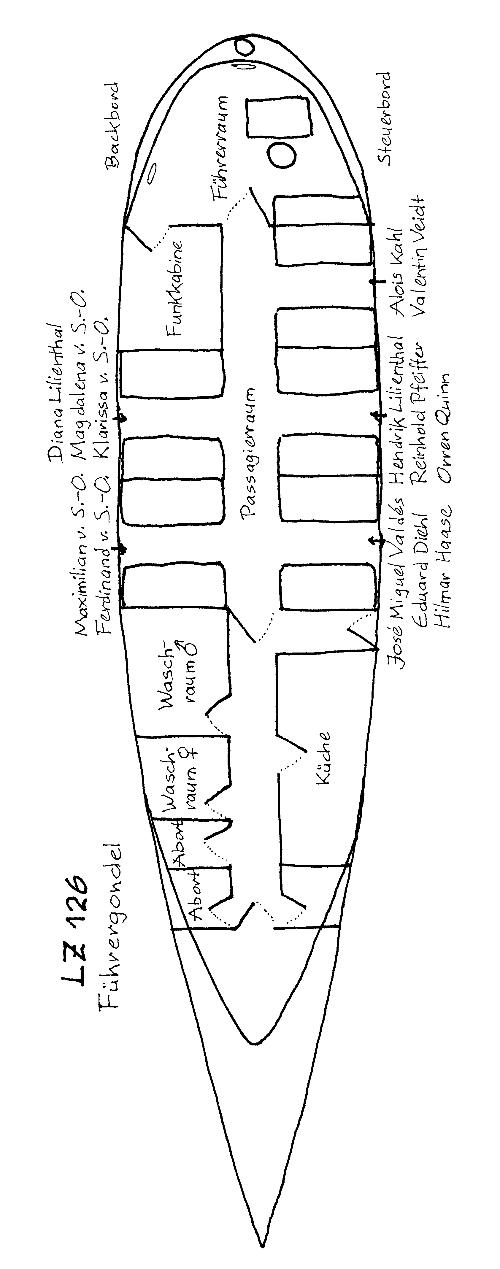 LZ 126
Führergondel
Backbord
Steuerbord
Führerraum
Funkkabine
Passagierraum
Diana Lilienthal
Magdalena v. S.-O.
Klarissa v. S.-O.
Maximilian v. S.-O.
Ferdinand v. S.-O.
Alois Kahl
Valentin Veidt
Hendrik Lilienthal
Reinhold Pfeiffer
Orren Quinn
José Miguel Valdés
Eduard Diehl
Hilmar Haase
Wasch-
raum ♂
Wasch-
raum ♀
Abort
Abort
Küche